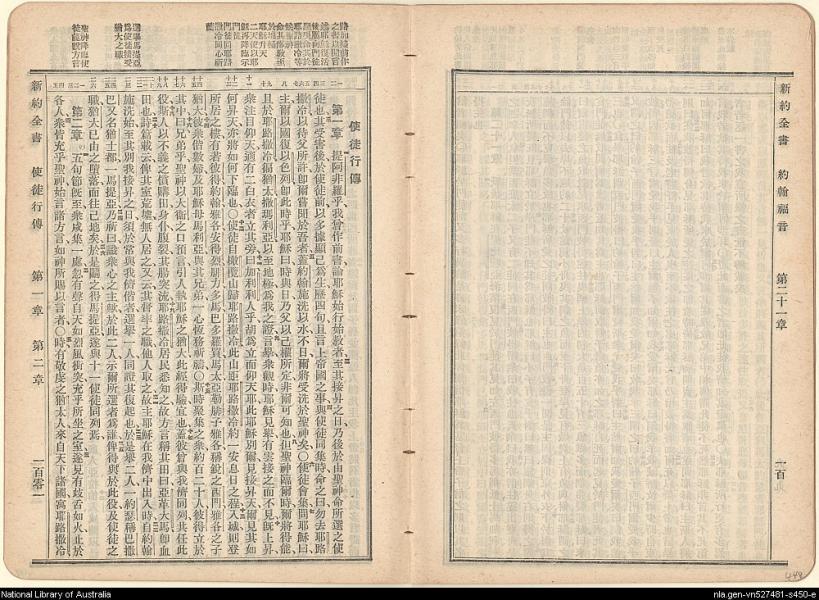 新約全書 約翰福音 第二十一章 一百
使徒行傳
第一章 提阿非羅乎我曾作前書論耶穌始行始教者至其接昇之日乃後於由聖神命所選之使
徒也其受害後於使徒前以多據顯己爲生歷四旬且言上帝國之事與使徒同集時命之曰勿去耶路
撒冷以待父所許卽爾嘗聞於吾者蓋約翰施洗以水不日爾將受洗於聖神矣○使徒會集問耶穌曰
主爾以國復以色列卽此時乎耶穌曰時與日乃父以己權所定非爾可知也但聖神臨爾時爾將得能
且於耶路撒冷徧猶太撒瑪利亞以至地極爲我之證言畢衆觀時耶穌見舉有雲接之而不見旣上昇
衆注目仰天適有二白衣者立其旁曰加利利人乎胡爲立而仰天耶此耶穌別爾見接昇天爾見其如
何昇天亦將如何下臨也○使徒自橄欖山歸耶路撒冷此山距耶路撒冷約一安息日之程入城則登
所居之樓有若彼得約翰雅各安得烈腓力多馬巴多羅買馬太亞勒腓子雅各稱銳之西門雅各之子
猶大彼衆偕數婦及耶穌母馬利亞與其兄弟一心恆務祈禱○斯時聚集之衆約百二十人彼得立於
其中曰兄弟乎聖神以大衞之口預言引人執耶穌之猶大此經得驗宜也蓋彼曾與我儕同列共任此
役斯人以不義之值購田身仆腹裂其腸突流耶路撒冷居民悉知之故方言稱其田曰亞革大馬卽血
田也詩篇載云俾其室荒墟無人居之又云其督率之職他人取之故主耶穌在我儕中出入時自約翰
施洗始至其別我接昇之日須於常與我儕偕者選舉一人同證其復起也於是舉二人一約瑟稱巴撒
巴又名猶士都一馬提亞乃祈曰識衆心之主歟於此二人示爾所選者爲誰俾得與於此役及使徒之
職猶大已由之墮落而往己地矣於是鬮之得馬提亞遂與十一使徒同列焉
第二章 五旬節旣至衆咸集一處忽有聲自天如烈風衝突充乎所坐之室遂見有歧舌如火止於
各人衆皆充乎聖神始言諸方言如神所賜以言者○時有敬虔之猶太人來自天下諸國寓耶路撒冷
新約全書 使徒行傳 第一章 第二章 一百零一
National Library of Australia
nla.gen-vn527481-s450-e